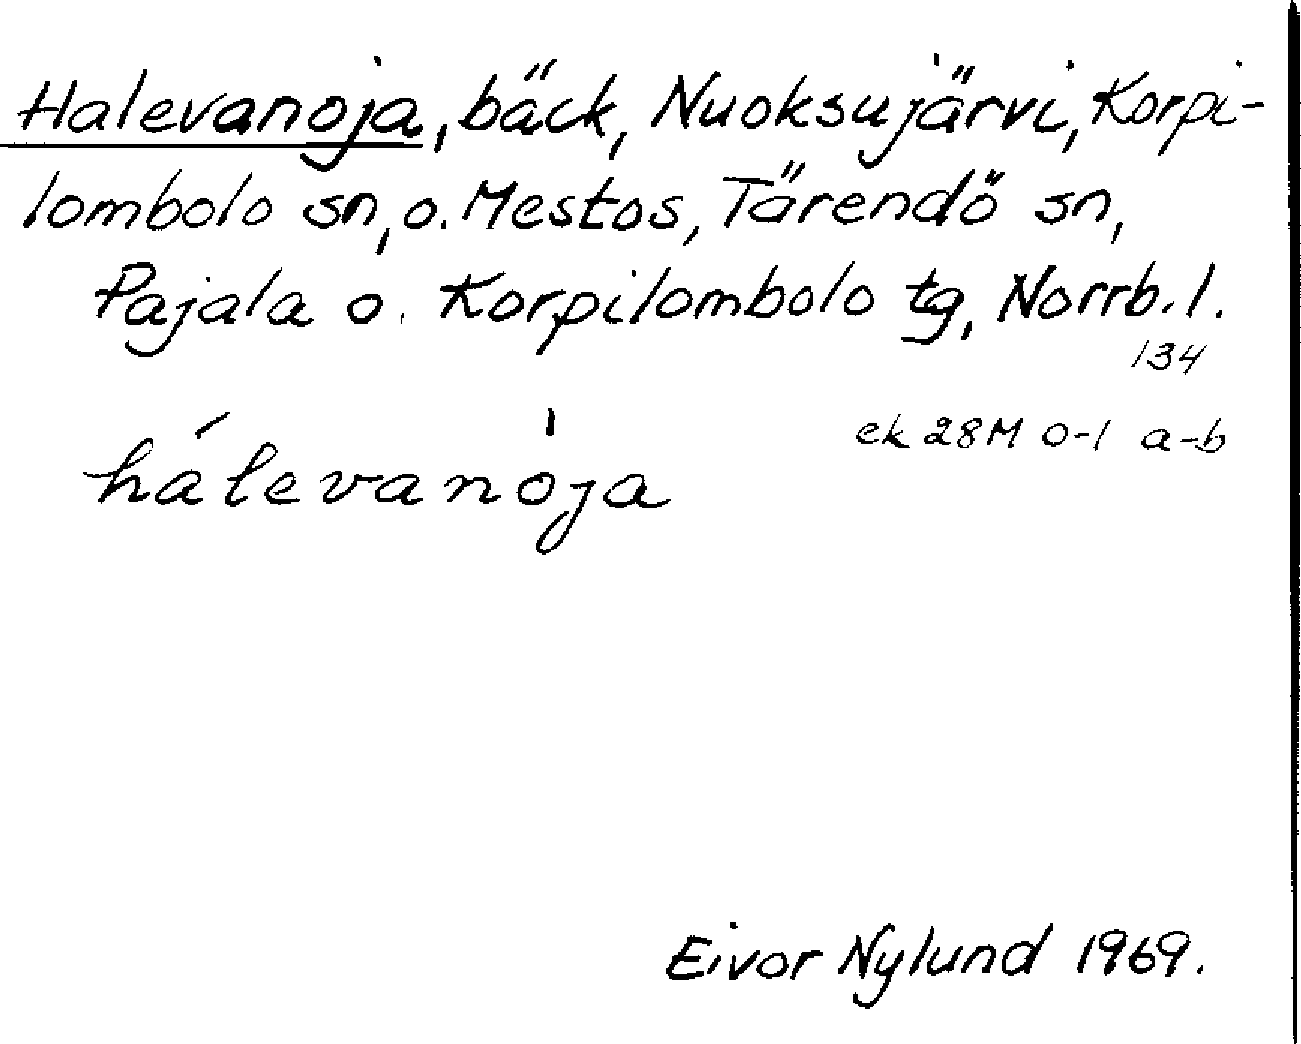 Halevanoja, bäck, Nuoksujärvi, Korpi-
lombolo sn, o. Mestos, Tärendö sn,
Pajala o. Korpilombolo tg, Norrb. l.
134
ek 28M 0-1 a-b
hálevanòja
Eivor Nylund 1969.